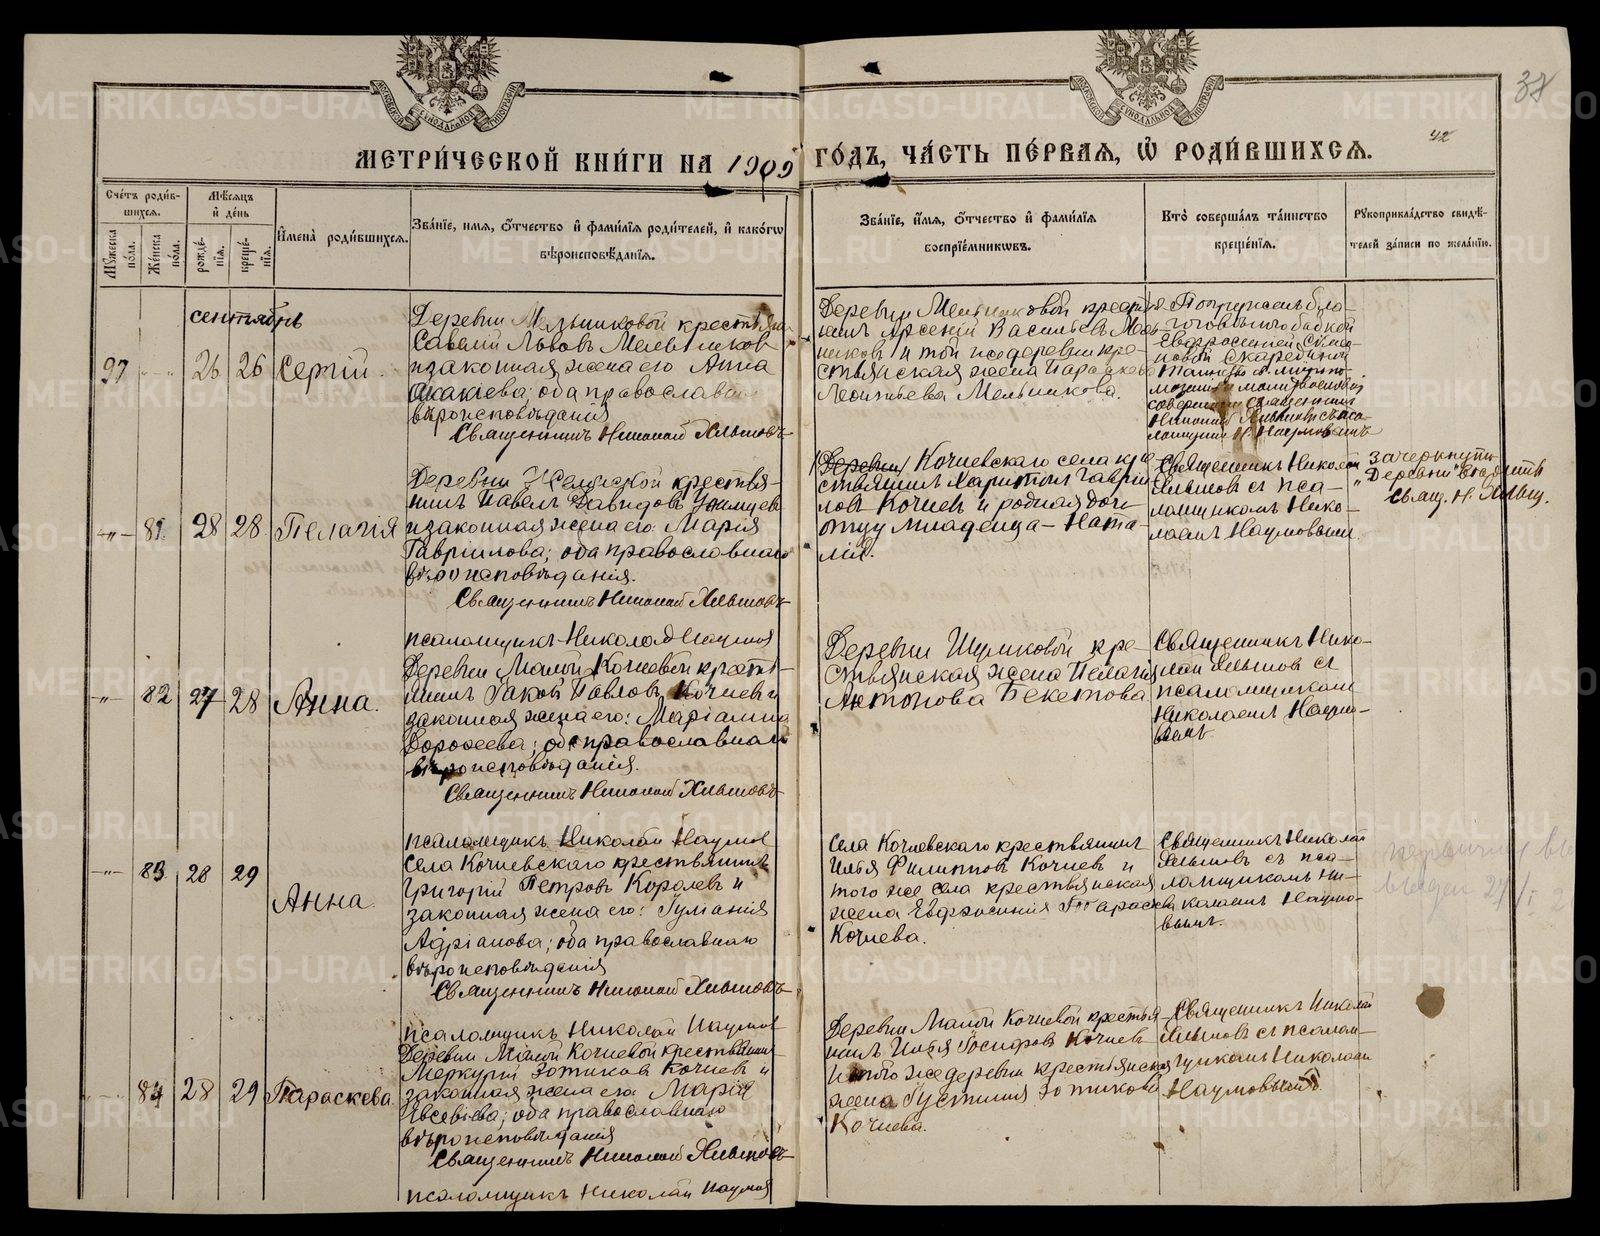 МЕТРИ́ЧЕСКОЙ КНИ́ГИ НА 1909 ГО́ДЪ, ЧА́СТЬ ПЕ́РВАЯ, Ѡ РОДИ́ВШИХСЯ.
37
42
Сче́тъ роди́в-
шихся.
Мꙋ́жеска по́ла.
Же́нска по́ла.
Мѣ́сяцъ
и҆ де́нь
рожде́-
нїя.
креще́-
нїя.
И҆мена̀ роди́вшихся.
Зва́нїе, и҆мя, ѻ҆́тчество и҆ фами́лїя роди́телей, и҆ како́гѡ
вѣроисповѣ́данїя.
Зва́нїе, и҆́мя, ѻ҆́тчество и҆ фами́лїя
воспрїе́мникѡвъ.
Кто̀ соверша́лъ та́инство
креще́нїя.
Рꙋкоприкла́дство свидѣ́-
телей за́писи по жела́нїю.
сентябрь
97
26
26
Сергій.
Деревни Мельниковой крестьянин
Савелій Львовъ Мельников
и законная жена его Анна
Акакіева; оба православнаго
вѣроисповѣданія
Священникъ Николай Хлыновъ
Деревни Мельниковой крестья-
нинъ Арсеній Васильевъ Мель-
никовъ и той же деревни кре-
стьянская жена Параскева
Леонтьева Мельникова.
Погружен бла-
гоговейного бабкой
Евфросиніей
Скарединой
совершилъ священникъ
Николай Хлыновъ съ пса-
ломщикомъ Н. Наумовымъ
81
28
28
Пелагія
Деревни крестья-
нинъ Павелъ Давидовъ
и законная жена его Марія
Гавріилова; оба православнаго
вѣроисповѣданія.
Священникъ Николай Хлыновъ
псаломщикъ Николай Наумов
(Деревни) Кочневскаго села кре-
стьянинъ Харитон Гаврии-
ловъ Кочнев и родная дочь
отцу младенца - Ната-
лія.
Священникъ Николай
Хлынов съ пса-
ломщикомъ Нико-
лаемъ Наумовымъ.
зачеркнутых
„Деревни" не читать
Свящ. Н. Хлын.
82
27
28
Анна.
Деревни Малой Кочневой кресть-
янинъ Іаковъ Павловъ Кочнев и
законная жена его: Маріамна
Дороѳеева; оба православнаго
вѣроисповѣданія.
Священникъ Николай Хлыновъ
псаломщикъ Николай Наумов
Деревни Шуликовой кре-
стьянская жена Пелагия
Антонова Бекетова
Священникъ Нико-
лай Хлынов съ
псаломщикомъ
Николаемъ Наумо-
вымъ
83
28
29
Анна.
Села Кочневскаго крестьянинъ
Григорій Петровъ Королевъ и
законная жена его: Гуманія
Адріанова; оба православнаго
вѣроисповѣданія
Священникъ Николай Хлыновъ
псаломщикъ Николай Наумов
Села Кочневскаго крестьянинъ
Илья Филипповъ Кочнев и
того же села крестьянская
жена Евфросинія Тарасова
Кочнева.
Священникъ Николай
Хлыновъ съ пса-
ломщикомъ Ни-
колаемъ Наумо-
вымъ.
84
28
29
Параскева.
Деревни Малой Кочневой крестьянинъ
Меркурій Зотиков Кочнев и
законная жена его Марія
Евсевіева; оба православнаго
вѣроисповѣданія
Священникъ Николай Хлыновъ
псаломщикъ Николай Наумов
Деревни Малой Кочневой крестья-
нинъ Илья Іосифовъ Кочнев
и той же деревни крестьянская
жена Іустинія Зотикова
Кочнева.
Священникъ Николай
Хлыновъ съ псалом-
щикомъ Николаемъ
Наумовымъ.
METRIKI.GASO-URAL.RU